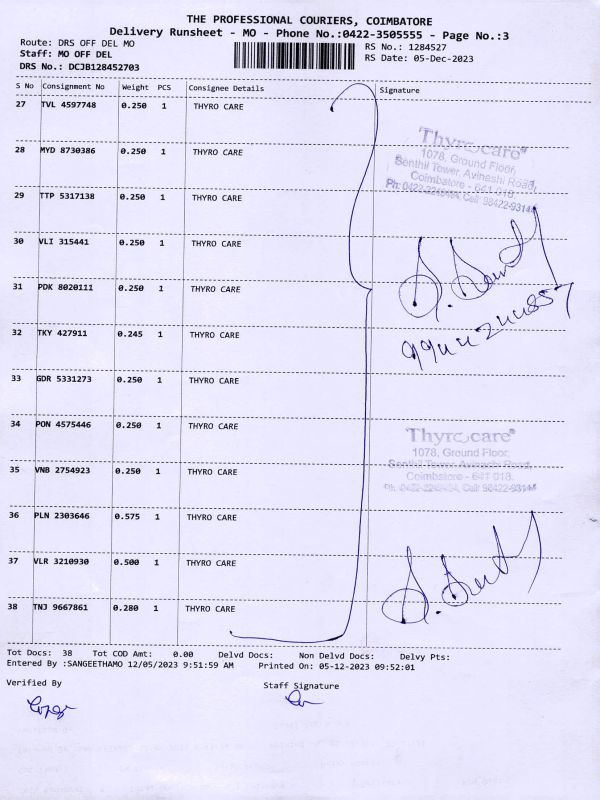 THE PROFESSIONAL COURIERS, COIMBATORE
Delivery Runsheet - MO - Phone No.:0422-3505555 - Page No.:3
Route: DRS OFF DEL MO
RS No.: 1284527
Staff: MO OFF DEL
RS Date: 05-Dec-2023
DRS No.: DCJB128452703
S No Consignment No Weight PCS Consignee Details Signature
27 TVL 4597748 0.250 1 THYRO CARE
28 MYD 8730386 0.250 1 THYRO CARE
29 TTP 5317138 0.250 1 THYRO CARE
30 VLI 315441 0.250 1 THYRO CARE
31 PDK 8020111 0.250 1 THYRO CARE
32 TKY 427911 0.245 1 THYRO CARE
33 GDR 5331273 0.250 1 THYRO CARE
34 PON 4575446 0.250 1 THYRO CARE
35 VNB 2754923 0.250 1 THYRO CARE
36 PLN 2303646 0.575 1 THYRO CARE
37 VLR 3210930 0.500 1 THYRO CARE
38 TNJ 9667861 0.280 1 THYRO CARE
Thyrocare®
1078, Ground Floor,
Senthil Tower, Avinashi Road,
Coimbatore - 641 018.
Thyrocare®
1078, Ground Floor,
Senthil Tower, Avinashi Road,
Coimbatore - 641 018.
Tot Docs: 38 Tot COD Amt: 0.00 Delvd Docs: Non Delvd Docs: Delvy Pts:
Entered By :SANGEETHAMO 12/05/2023 9:51:59 AM Printed On: 05-12-2023 09:52:01
Verified By Staff Signature